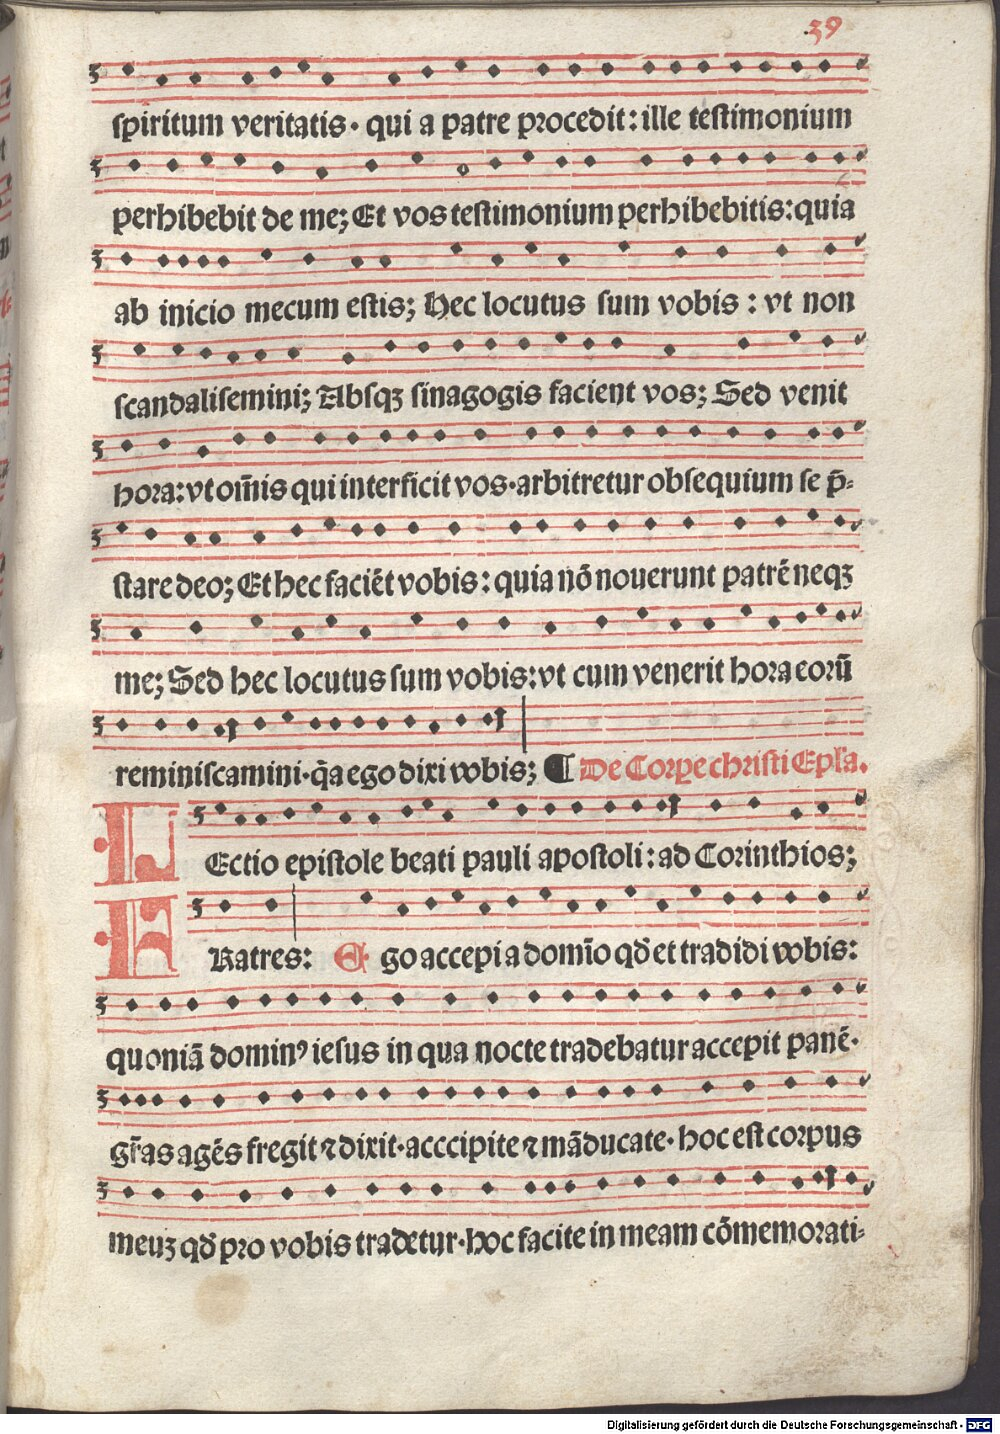 39
ſpiritum veritatis· qui a patre procedit: ille teſtimonium
perhibebit de me; Et vos teſtimonium perhibebitis: quia
ab inicio mecum eſtis; Hec locutus ſum vobis : vt non
ſcandaliſemini; Abſqꝫ ſinagogis facient vos; Sed venit
hora: vt om̄is qui interficit vos· arbitretur obſequium ſe p̄⸗
ſtare deo; Et hec faciēt vobis: quia nō nouerunt patrē neqꝫ
me; Sed hec locutus ſum vobis: vt cum venerit hora eorū
reminiſcamini· q̄a ego dixi vobis; ¶ De Corpe chriſti Epl̄a.
LEctio epiſtole beati pauli apoſtoli: ad Corinthios;
FRatres: E· go accepi a domīo qđ et tradidi vobis:
quoniā dominꝰ ieſus in qua nocte tradebatur accepit panē·
gr̄as agēs fregit ⁊ dixit· acccipite ⁊ māducate· hoc eſt corpus
meuꝫ qđ pro vobis tradetur· hoc facite in meam cōmemorati⸗
Digitalisierung gefördert durch die Deutsche Forschungsgemeinschaft - DFG